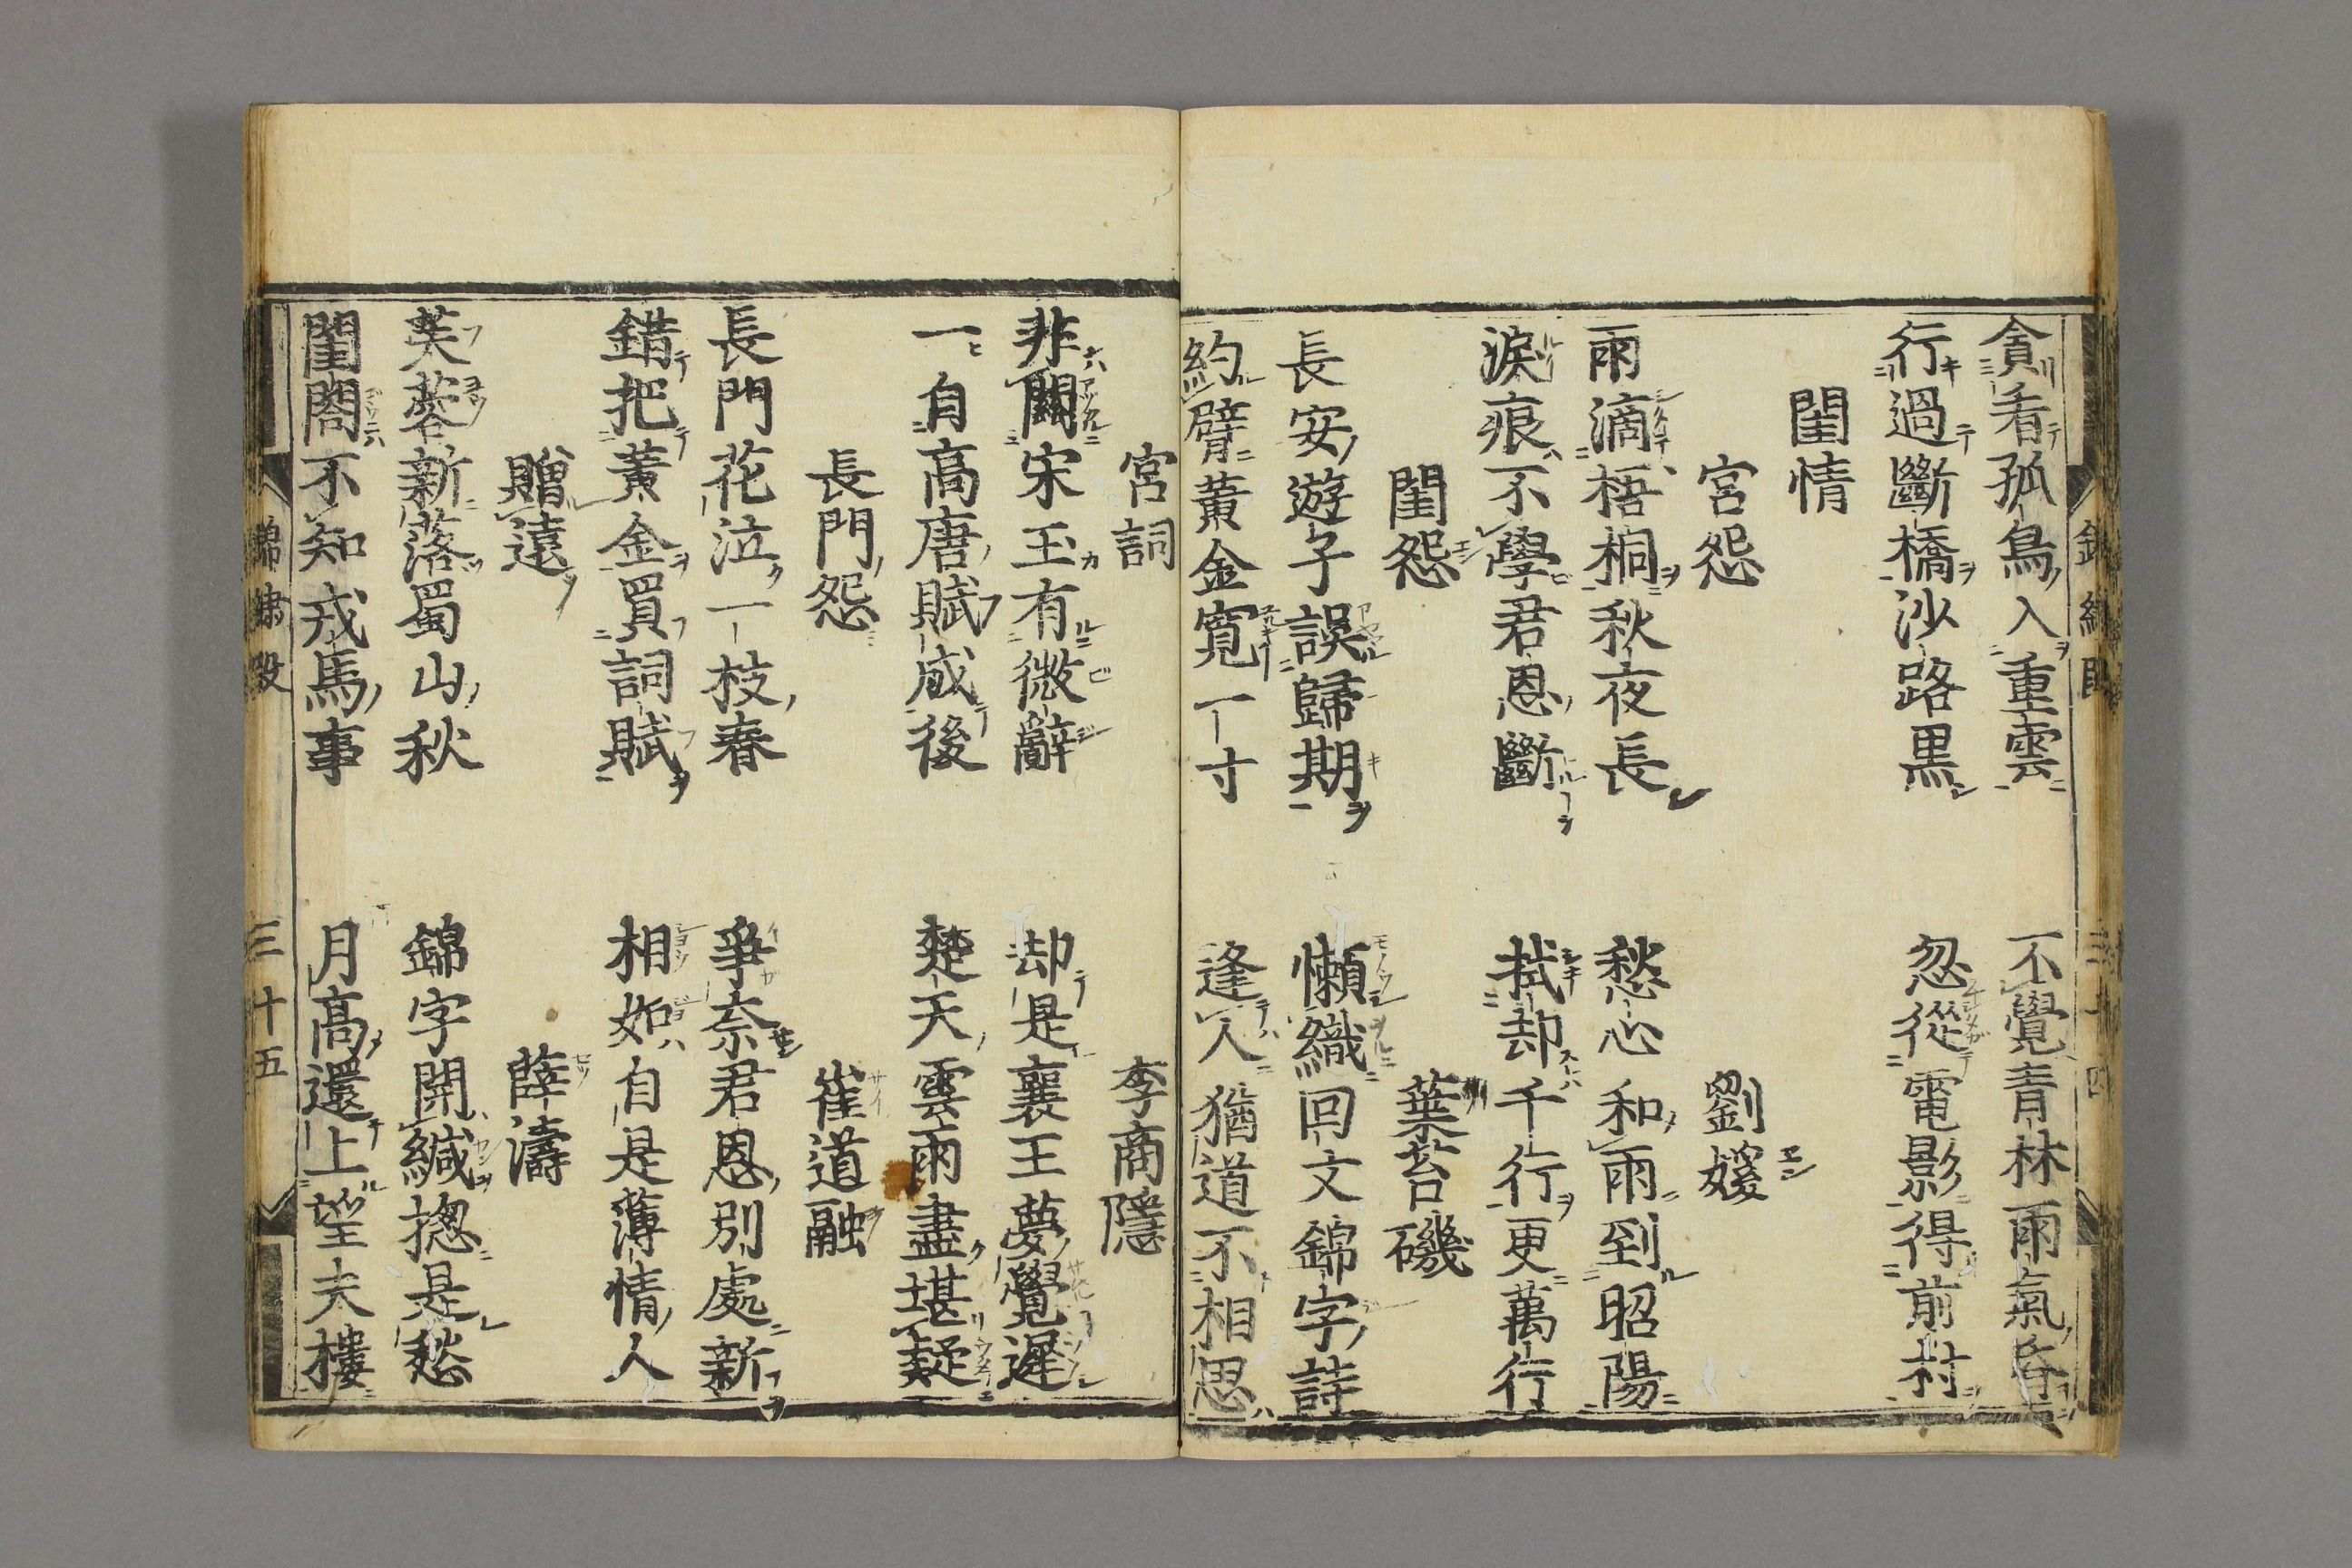 貪看孤鳥入重雲　不覺青林雨氣昏
行過斷橋沙路黒　忽從電影得前村
閨情
宮怨　劉媛
雨滴梧桐秋夜長　愁心和雨到昭陽
淚痕不學君恩斷　拭却千行更萬行
閨怨　葉苔磯
長安遊子誤歸期　懶織回文錦字詩
約臂黄金寛一寸　逢人猶道不相思
宮詞　李商隱
非關宋玉有微辭　却是襄王夢覺遲
一自高唐賦成後　楚天雲雨盡堪疑
長門怨　崔道融
長門花泣一枝春　爭奈君恩別處新
錯把黄金買詞賦　相如自是薄情人
贈遠　薛濤
芙蓉新落蜀山秋　錦字開緘揔是愁
閨閤不知戎馬事　月高還上望夫樓
三十五